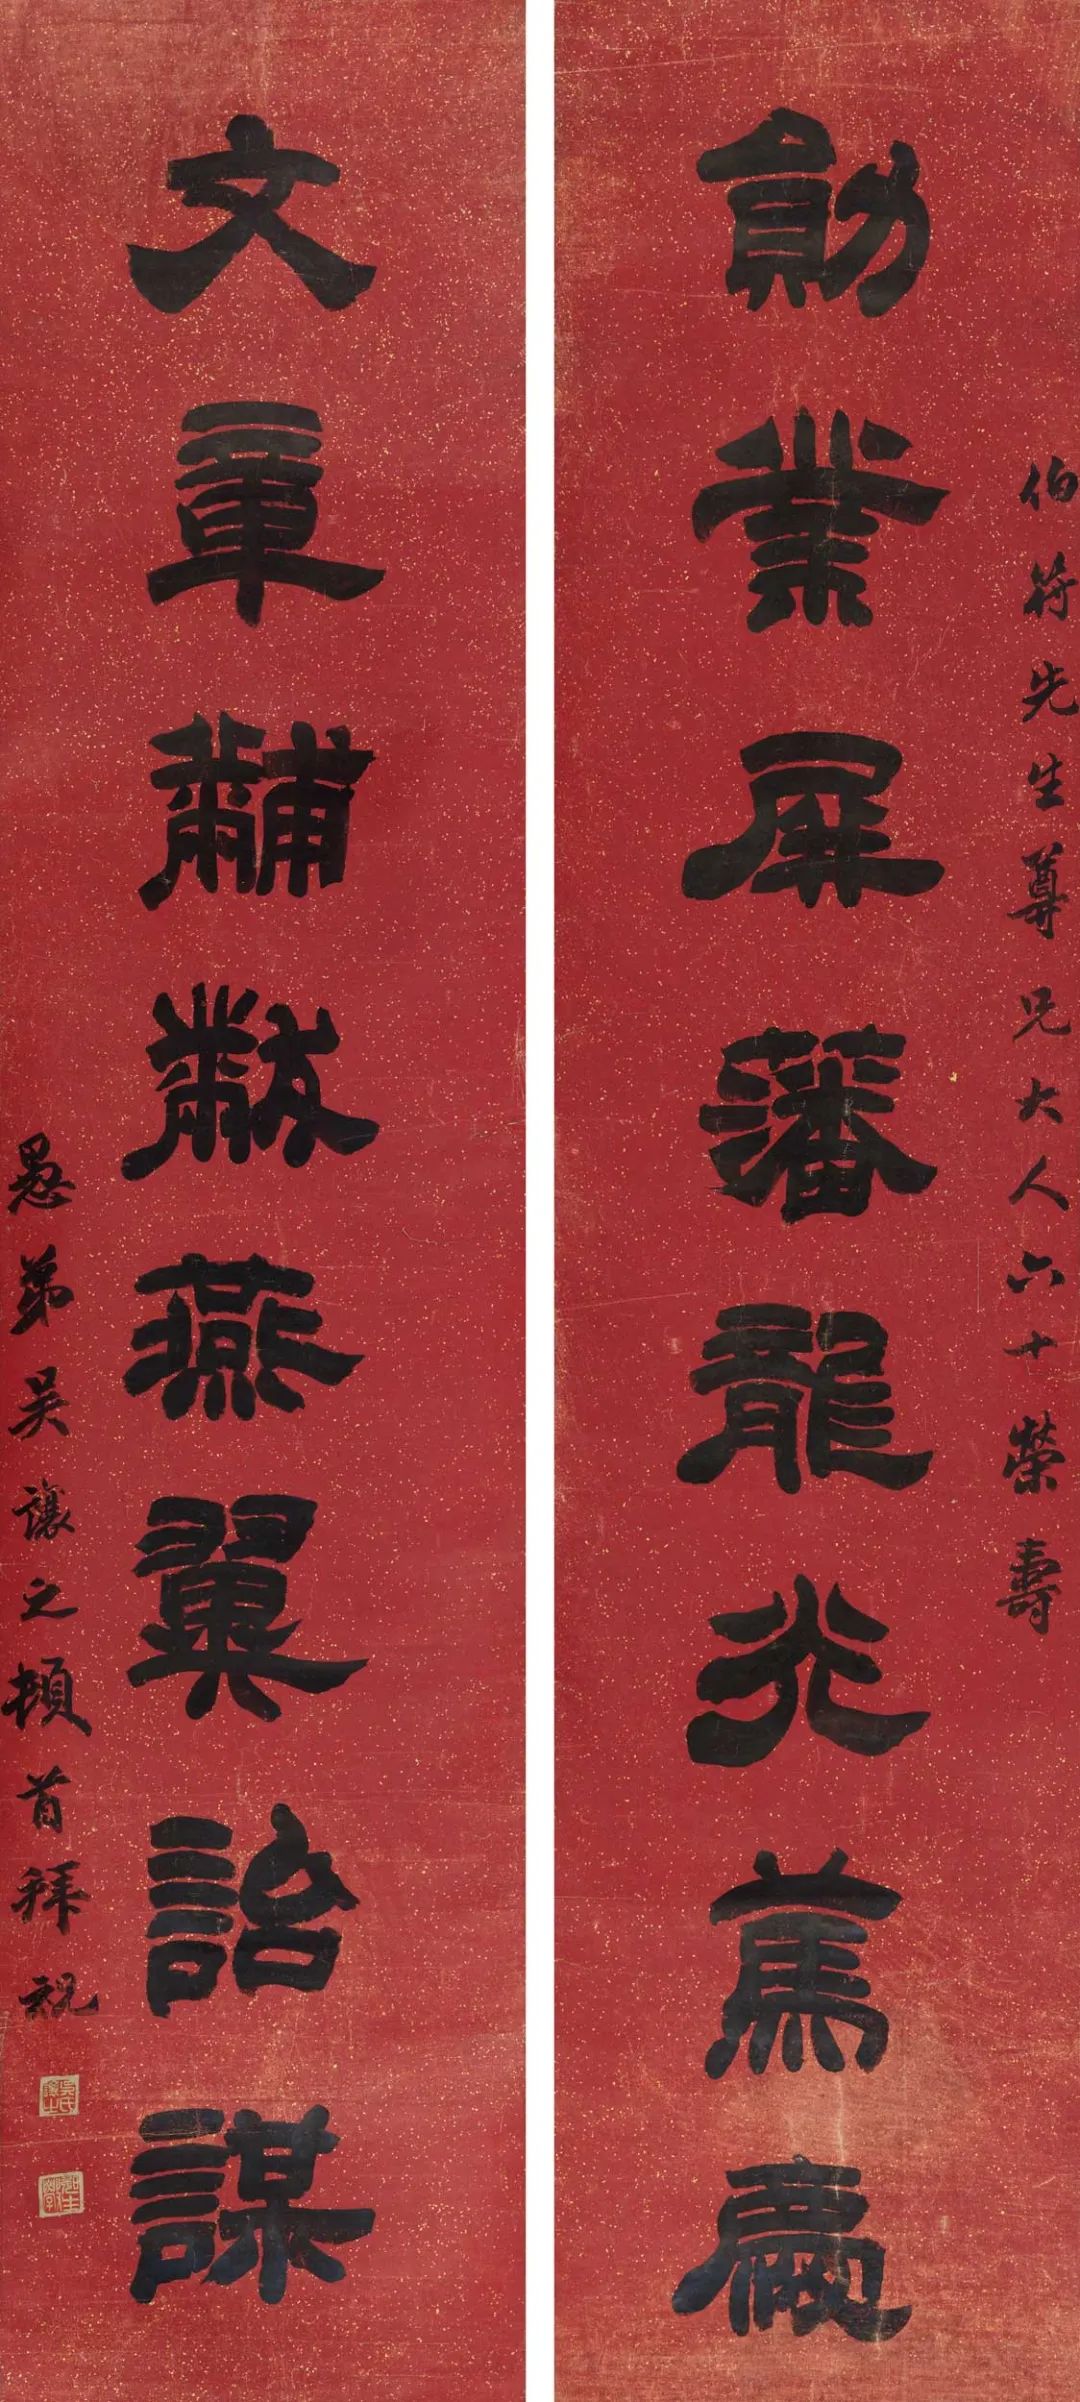 伯符先生尊兄大人六十榮壽
勛業屏藩龍光薦慶
文章黼黻燕翼詒謀
愚弟吳讓之頓首拜祝